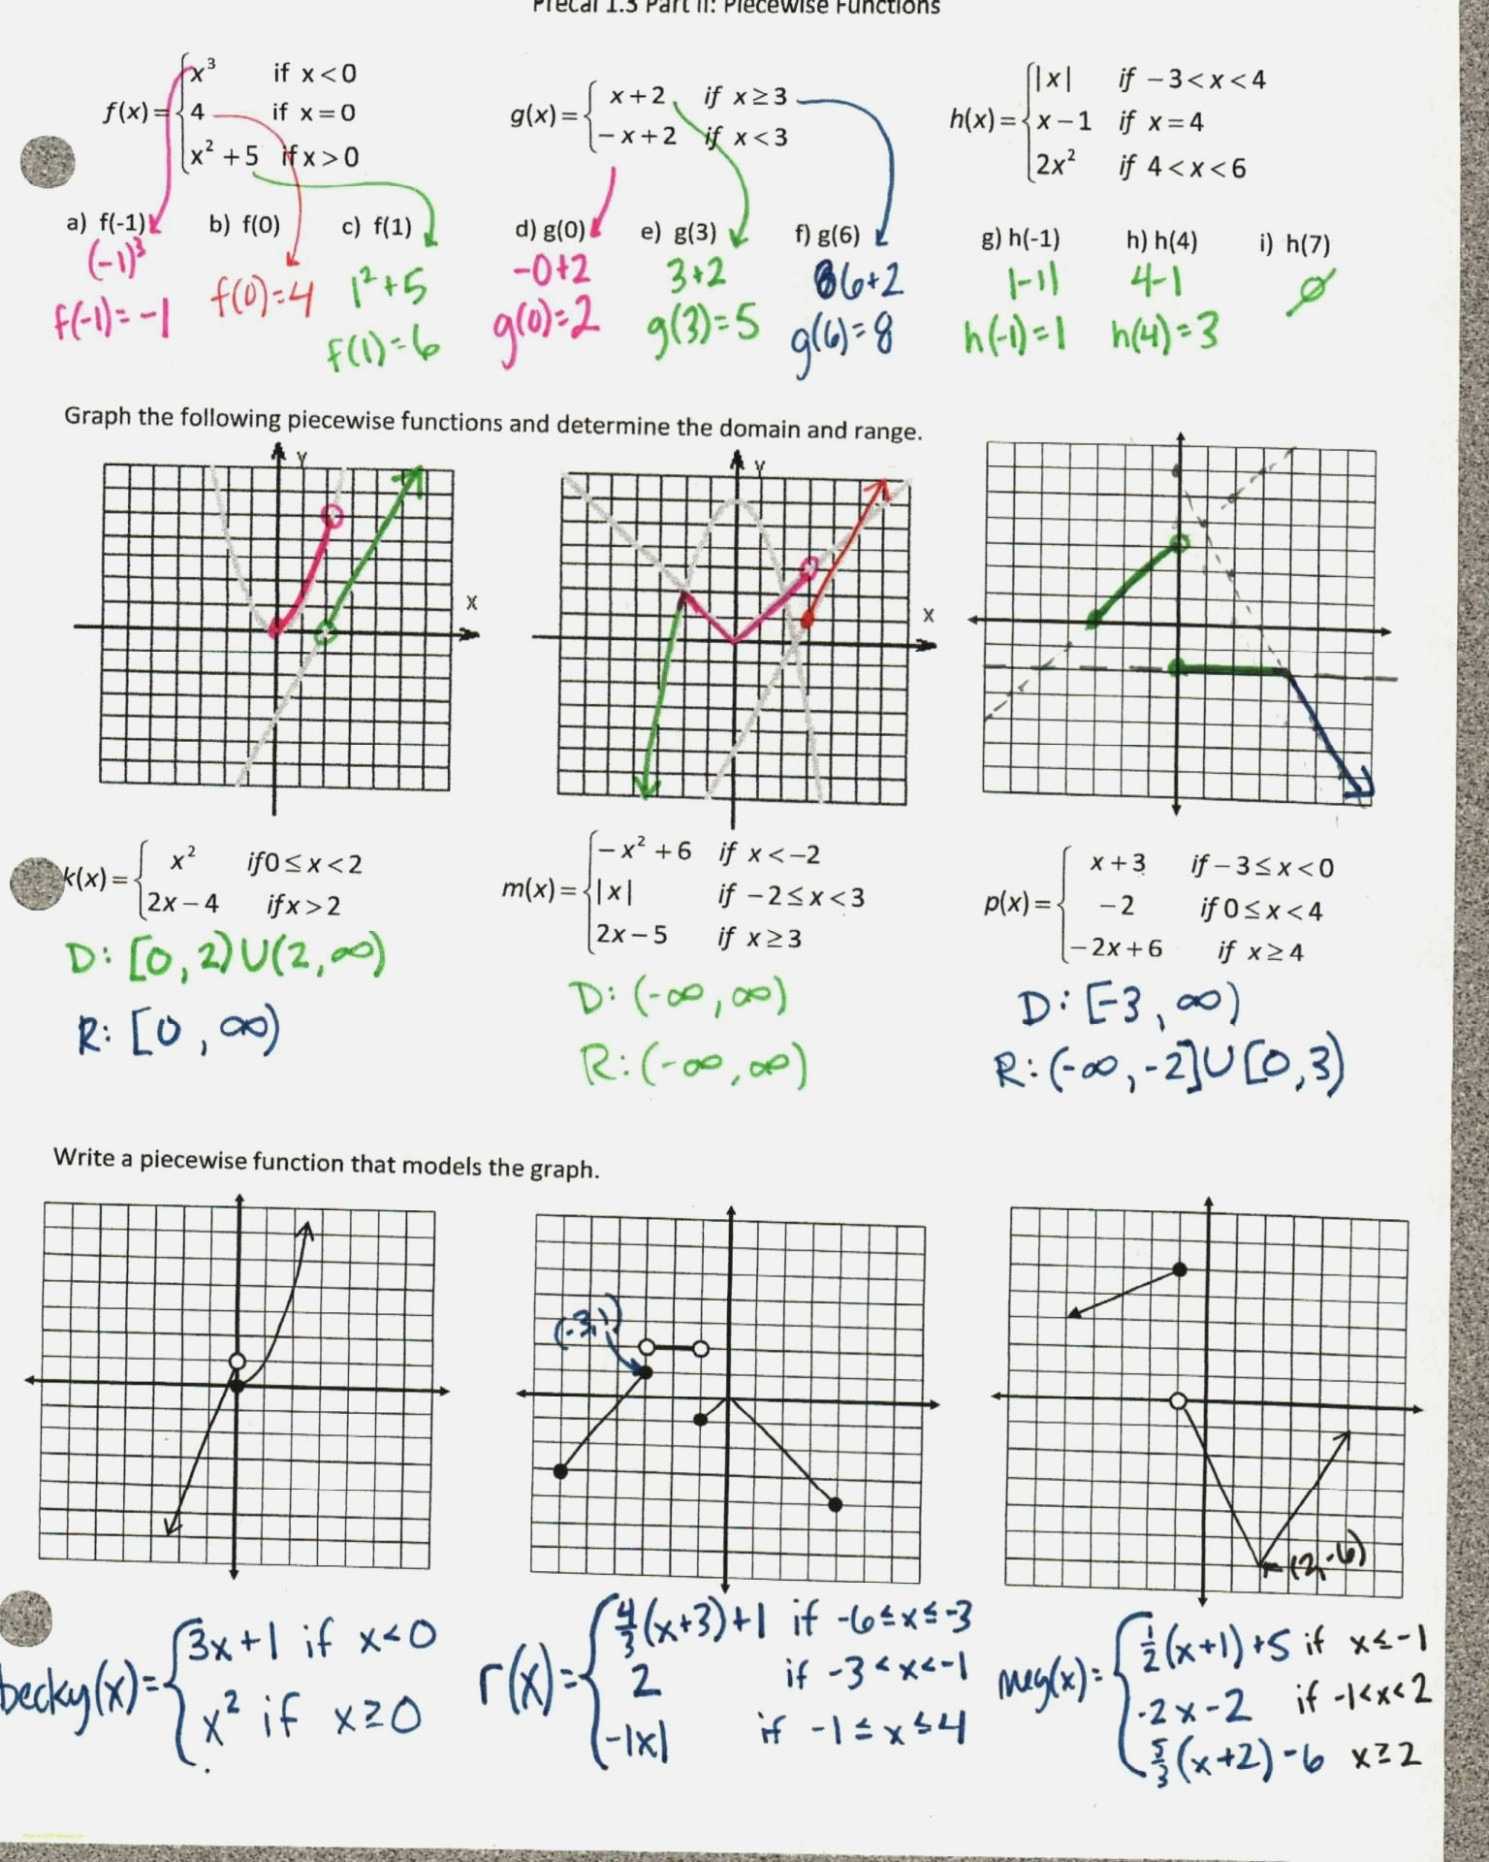 Precal 1.3 Part II: Piecewise Functions
f(x)= { x³ if x<0
4 if x=0
x² +5 if x>0
g(x)= { x+2 if x≥3
-x+2 if x<3
h(x)= { |x| if -3<x<4
x-1 if x=4
2x² if 4<x<6
a) f(-1) b) f(0) c) f(1) d) g(0) e) g(3) f) g(6) g) h(-1) h) h(4) i) h(7)
(-1)³
f(-1)=-1
f(0)=4
1²+5
f(1)=6
-0+2
g(0)=2
3+2
g(3)=5
6+2
g(6)=8
|-1|
h(-1)=1
4-1
h(4)=3
∅
Graph the following piecewise functions and determine the domain and range.
y
x
y
x
k(x)= { x² if 0≤x<2
2x-4 if x>2
D: [0,2)∪(2,∞)
R: [0,∞)
m(x)= { -x² +6 if x<-2
|x| if -2≤x<3
2x-5 if x≥3
D: (-∞,∞)
R: (-∞,∞)
p(x)= { x+3 if -3≤x<0
-2 if 0≤x<4
-2x+6 if x≥4
D: [-3,∞)
R: (-∞,-2]∪[0,3)
Write a piecewise function that models the graph.
(-3,1)
(2,-6)
becky(x)= { 3x+1 if x<0
x² if x≥0
r(x)= { 4/3(x+3)+1 if -6≤x≤-3
2 if -3<x<-1
-|x| if -1≤x≤4
meg(x)= { 1/2(x+1)+5 if x≤-1
-2x-2 if -1<x<2
5/3(x+2)-6 x≥2